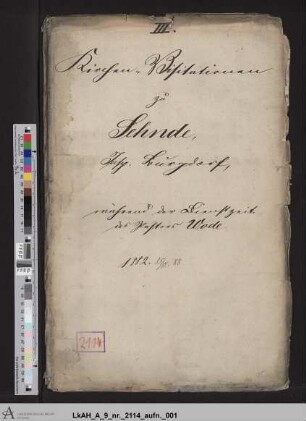 III.
Kirchen-Visitationen
zu
Sehnde,
Insp. Burgdorf,
während der Dienstzeit
des Pastors Wode
1882.
2114
LkAH_A_9_nr._2114_aufn._001